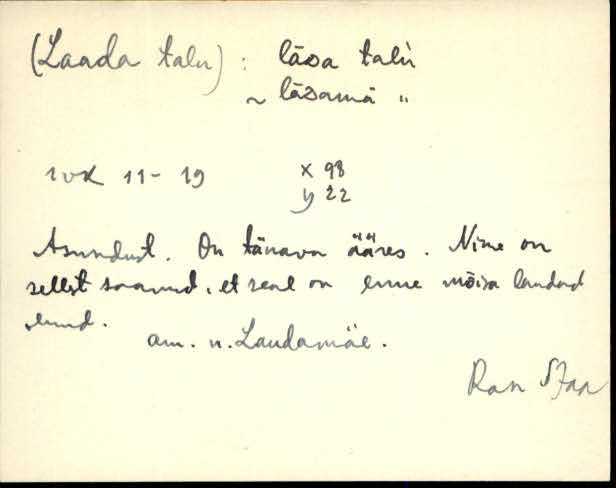 (Laada talu): lāɜa talù
~ lāɜamä "
11-19 x 98
y 22
Asundust. On tänava ääres. Nime on
sellest saanud, et seal on enne mõisa laudad
olnud.
am. n. Laudamäe.
Ran